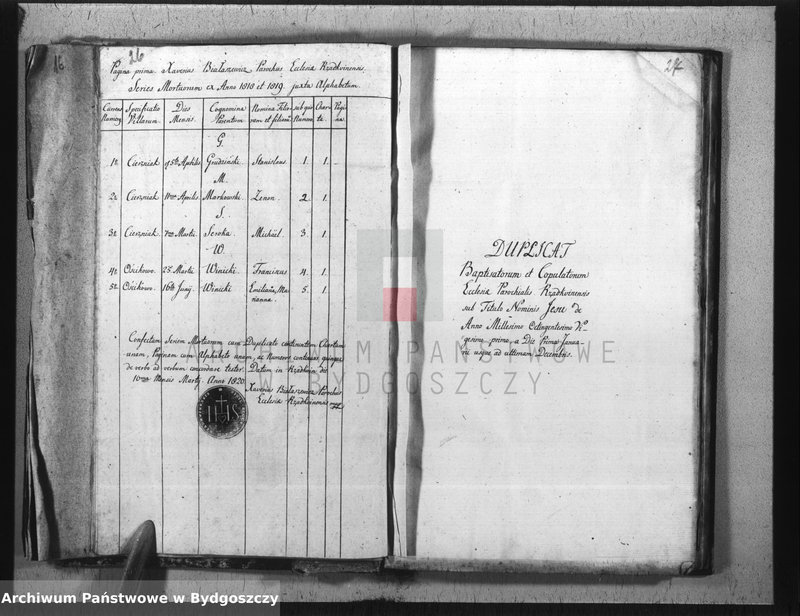 16
26
Pagina prima Xaverius Białaszewicz Parochus Ecclesiæ Rządkvinensis.
Series Mortuorum ex Anno 1818 et 1819. juxta Alphabetum.
Specificatio Villarum. Dies Mensis. Cognomina Parentum Nomina sub quo Numero Char-ta. Pagi-na.
G.
1. Cierzniak 15 Aprilis Grudziński Stanislaus 1. 1.
M.
2. Cierzniak Aprilis Markowski Zenon. 2. 1.
S.
3. Cierzniak 7ma Martii Seroka Michaël. 3. 1.
W.
4. Ośćikowo. 25 Martii Winicki Franciscus 4. 1.
5. Ośćikowo. 16ta Junij Winicki Emiliana Ma- 5. 1.
rianna.
Confectam Seriem Mortuorum cum Duplicato continentem Chartam
unam, Paginam cum Alphabeto unam, ac Numeros continens quinque
de verbo ad verbum concordare testor. Datum in Rządkvin die
10ma Mensis Martij Anno 1820.
Xaverius Białaszewicz Parochus
Ecclesiæ Rządkvinensis
IHS
27
DUPLICAT
Baptisatorum et Copulatorum
Ecclesiæ Parochialis Rządkvinensis
sub Titulo Nominis Jesu de
Anno Millesimo Octingentesimo Vi-
gesimo primo, a Die Prima Janua-
rii usque ad ultimam Decembris.
ARCHIWUM PAŃSTWOWE
W BYDGOSZCZY
Archiwum Państwowe w Bydgoszczy